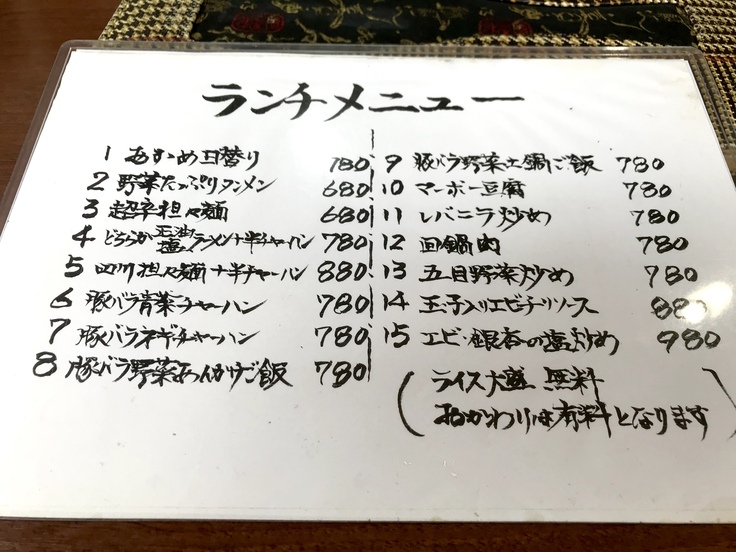 ランチメニュー
1 おすすめ日替り 780
2 野菜たっぷりタンメン 680
3 超辛担々麺 680
4 どちらか 正油 塩 ラーメン+半チャーハン 780
5 四川担々麺+半チャーハン 880
6 豚バラ青菜チャーハン 780
7 豚バラネギチャーハン 780
8 豚バラ野菜あんかけご飯 780
9 豚バラ野菜土鍋ご飯 780
10 マーボー豆腐 780
11 レバニラ炒め 780
12 回鍋肉 780
13 五目野菜炒め 780
14 玉子入りエビチリソース 880
15 エビ・銀杏の塩炒め 980
(ライス大盛 無料
おかわりは有料となります)